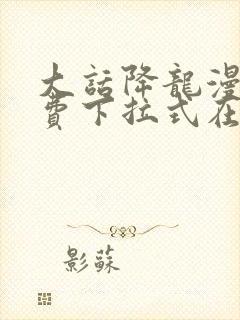 大話降龍漫
費下拉式在
影蘇